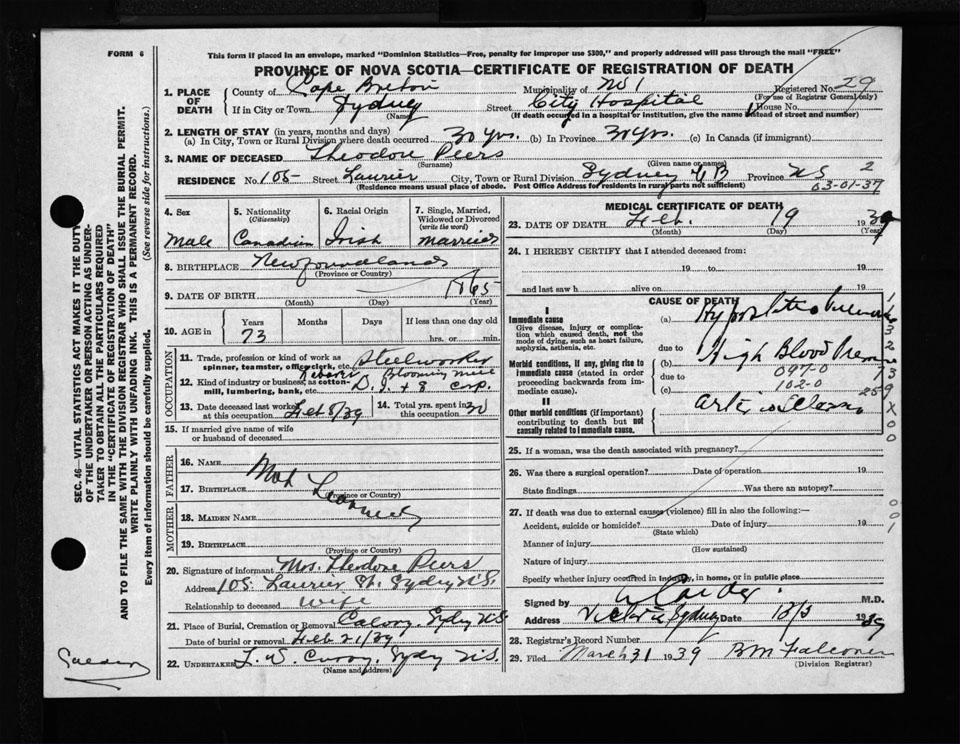 FORM 6
This form if placed in an envelope, marked "Dominion Statistics—Free, penalty for improper use $300," and properly addressed will pass through the mail "FREE"
PROVINCE OF NOVA SCOTIA—CERTIFICATE OF REGISTRATION OF DEATH
1. PLACE OF DEATH
County of Cape Breton Municipality of No 1 Registered No. 29
(For use of Registrar General only)
If in City or Town Sydney Street City Hospital House No.
(Name) (If death occurred in a hospital or institution, give the name instead of street and number)
2. LENGTH OF STAY (in years, months and days)
(a) In City, Town or Rural Division where death occurred 30 yrs. (b) In Province 30 yrs. (c) In Canada (if immigrant)
3. NAME OF DECEASED Theodore Peers
(Surname) (Given name or names)
RESIDENCE No. 105 Street Laurier City, Town or Rural Division Sydney CB Province NS 2
(Residence means usual place of abode. Post Office Address for residents in rural parts not sufficient) 03-01-37
4. Sex Male
5. Nationality (Citizenship) Canadian
6. Racial Origin Irish
7. Single, Married, Widowed or Divorced (write the word) Married
8. BIRTHPLACE Newfoundland
(Province or Country)
9. DATE OF BIRTH 1865
(Month) (Day) (Year)
10. AGE in Years Months Days If less than one day old
73 hrs. or min.
OCCUPATION
11. Trade, profession or kind of work as spinner, teamster, office clerk, etc. Steelworker
12. Kind of industry or business, as cotton-mill, lumbering, bank, etc. Blooming Mill
D. I. & S Corp.
13. Date deceased last worked at this occupation Feb 8/39
14. Total yrs. spent in this occupation 30
15. If married give name of wife or husband of deceased
FATHER
16. NAME
17. BIRTHPLACE
(Province or Country)
Not
MOTHER
18. MAIDEN NAME
19. BIRTHPLACE
(Province or Country)
20. Signature of informant Mrs. Theodore Peers
Address 105 Laurier St. Sydney N.S.
Relationship to deceased wife
21. Place of Burial, Cremation or Removal Calvary, Sydney NS
Date of burial or removal Feb 21/39
22. UNDERTAKER Sydney N.S.
(Name and address)
MEDICAL CERTIFICATE OF DEATH
23. DATE OF DEATH Feb. 19 1939
(Month) (Day) (Year)
24. I HEREBY CERTIFY that I attended deceased from:
19 to 19
and last saw h alive on 19
CAUSE OF DEATH
I
Immediate cause (a)
Give disease, injury or complication which caused death, not the mode of dying, such as heart failure, asphyxia, asthenia, etc.
due to
Morbid conditions, if any, giving rise to immediate cause (stated in order proceeding backwards from immediate cause).
(b) High Blood
due to 097-0
(c) 102-0
II
Other morbid conditions (if important) contributing to death but not causally related to immediate cause.
25. If a woman, was the death associated with pregnancy?
26. Was there a surgical operation? Date of operation 19
State findings Was there an autopsy?
27. If death was due to external causes (violence) fill in also the following:—
Accident, suicide or homicide? Date of injury 19
(State which)
Manner of injury
(How sustained)
Nature of injury
Specify whether injury occurred in industry, in home, or in public place
Signed by M.D.
Address Sydney Date 1939
28. Registrar's Record Number
29. Filed March 31 1939 BM Falconer
(Division Registrar)
SEC. 46—VITAL STATISTICS ACT MAKES IT THE DUTY
OF THE UNDERTAKER OR PERSON ACTING AS UNDER-
TAKER TO OBTAIN ALL THE PARTICULARS REQUIRED
IN THE "CERTIFICATE OF REGISTRATION OF DEATH"
AND TO FILE THE SAME WITH THE DIVISION REGISTRAR WHO SHALL ISSUE THE BURIAL PERMIT.
WRITE PLAINLY WITH UNFADING INK. THIS IS A PERMANENT RECORD.
Every item of information should be carefully supplied. (See reverse side for instructions.)